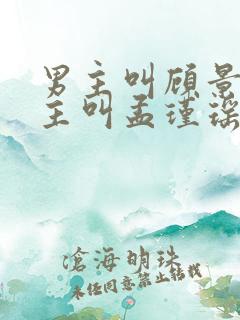 男主叫顾景
主叫孟瑾瑶
沧海明珠
未经同意禁止转载